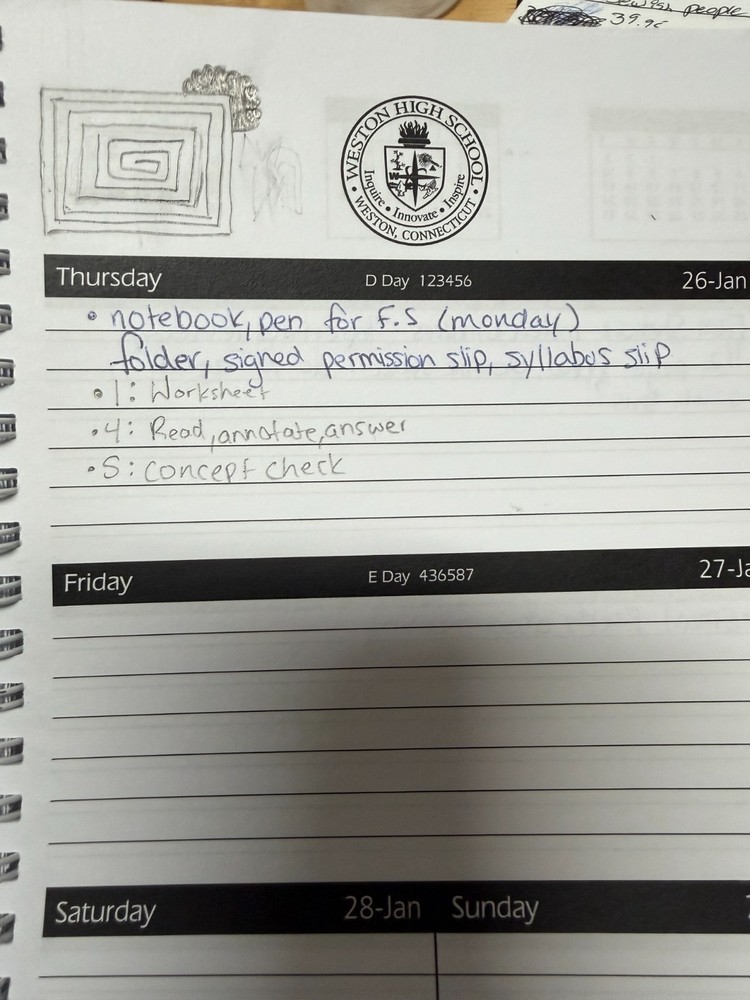 people
39.95
WESTON HIGH SCHOOL
Inquire • Innovate • Inspire
• WESTON, CONNECTICUT •
Thursday D Day 123456 26-Jan
• notebook, pen for F.S (monday)
folder, signed permission slip, syllabus slip
• 1: Worksheet
• 4: Read, annotate, answer
• 5: concept check
Friday E Day 436587 27-Ja
Saturday 28-Jan Sunday